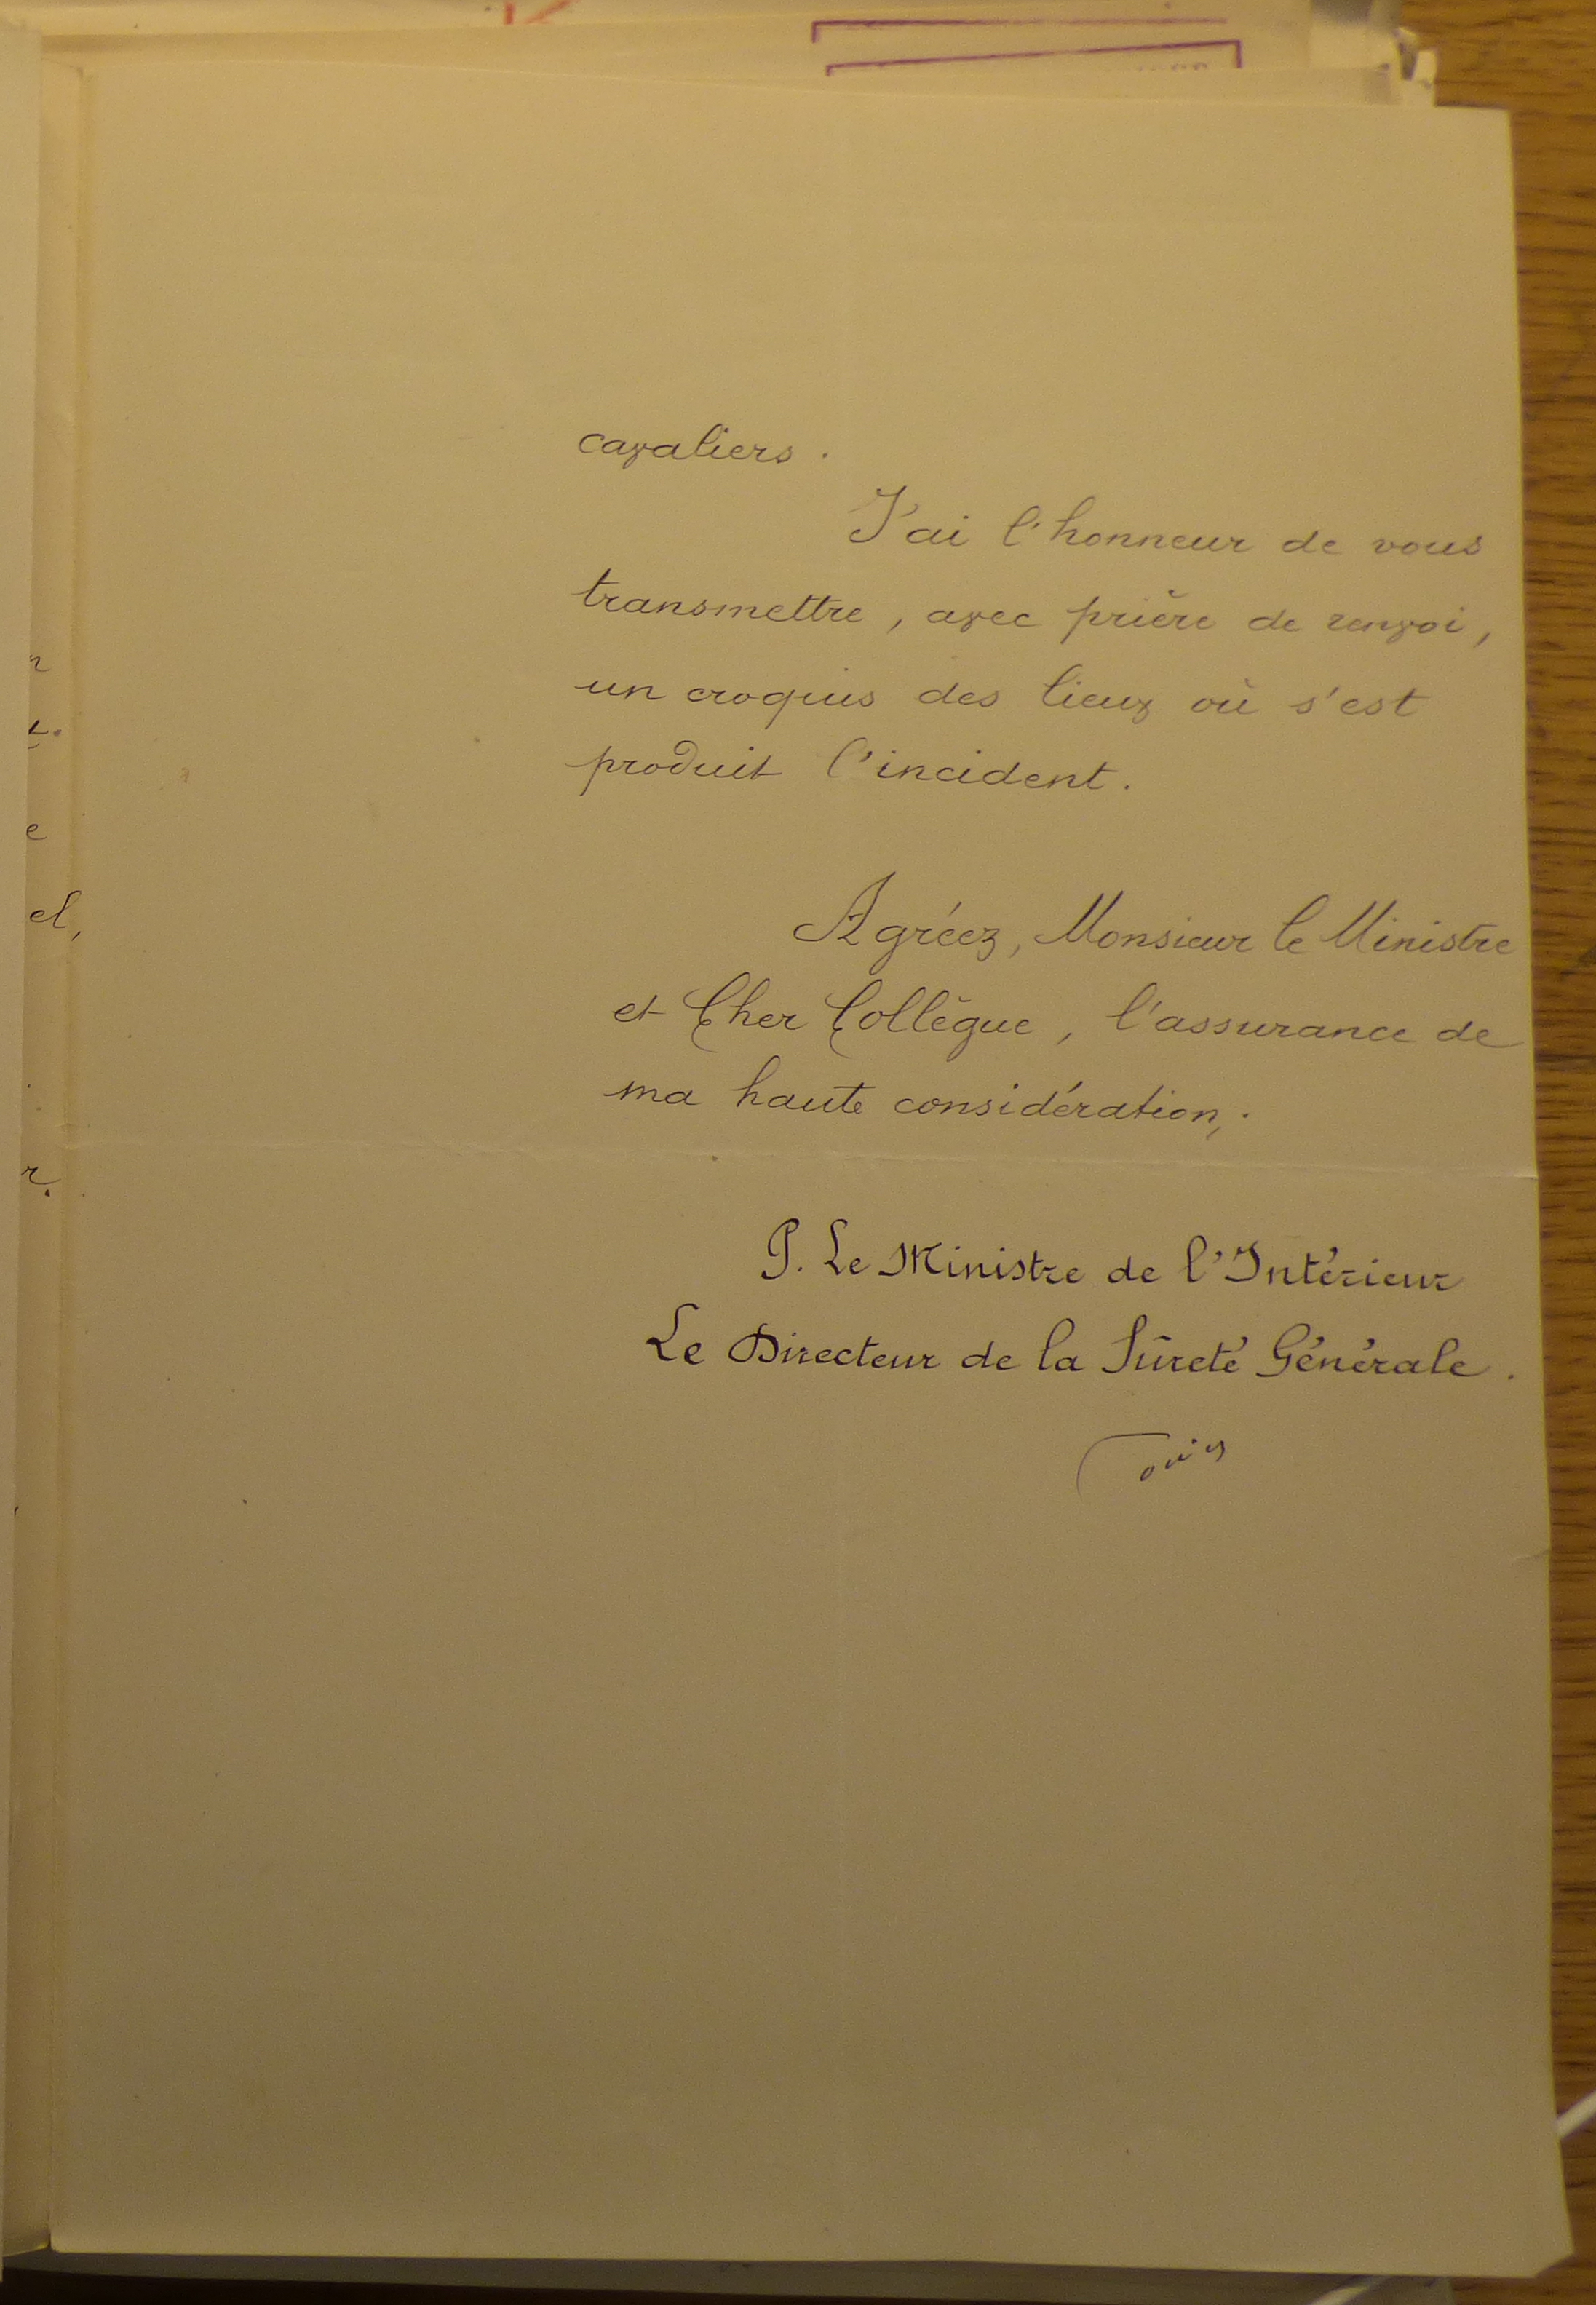 cavaliers.
J'ai l'honneur de vous
transmettre, avec prière de renvoi,
un croquis des lieux où s'est
produit l'incident.
Agréez, Monsieur le Ministre
et Cher Collègue, l'assurance de
ma haute considération,.
P. Le Ministre de l'Intérieur
Le Directeur de la Sûreté Générale.